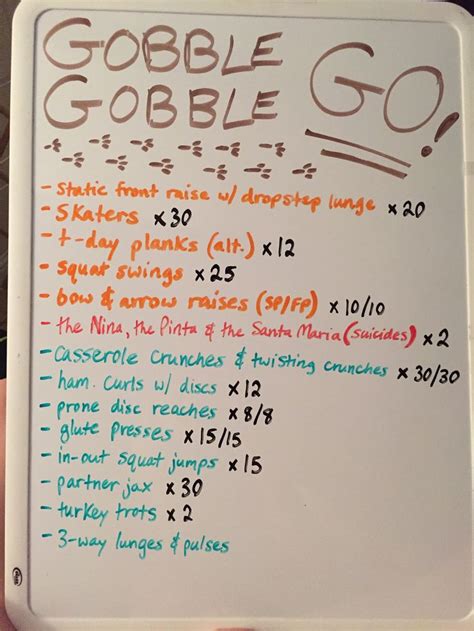 GOBBLE
GOBBLE GO!
- static front raise w/ dropstep lunge x 20
- Skaters x 30
- t-day planks (alt.) x 12
- squat swings x 25
- bow & arrow raises (SP/FP) x 10/10
- the Nina, the Pinta & the Santa Maria (suicides) x 2
- Casserole Crunches & twisting crunches x 30/30
- ham. Curls w/ discs x 12
- prone disc reaches x 8/8
- glute presses x 15/15
- in-out squat jumps x 15
- partner jax x 30
- turkey trots x 2
- 3-way lunges & pulses